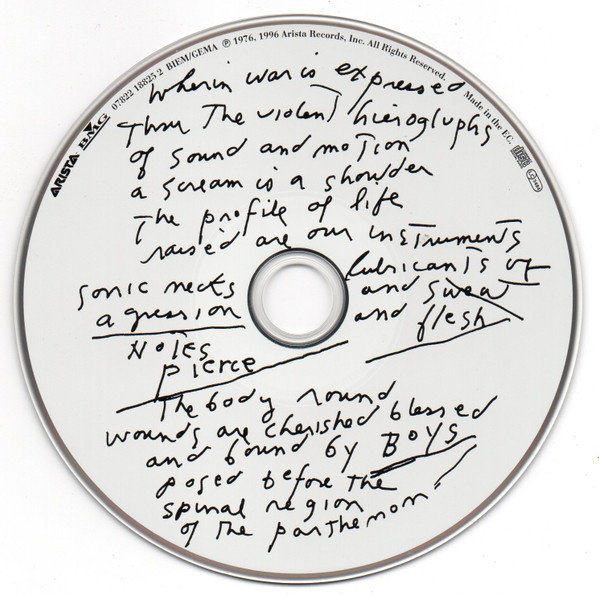 07822 18825 2 BIEM/GEMA ℗ 1976, 1996 Arista Records, Inc. All Rights Reserved. Made in the E.C.
ARISTA BMG
wherin war is expressed
thru The violent hieroglyphs
of sound and motion
a scream is a shoulder
The profile of life
raised are our instruments
sonic necks lubricants of
agression and sweat
and flesh
Notes
pierce
The body round
wounds are cherished blessed
and bound by BOYS
posed before the
spinal region
of the parthenon"